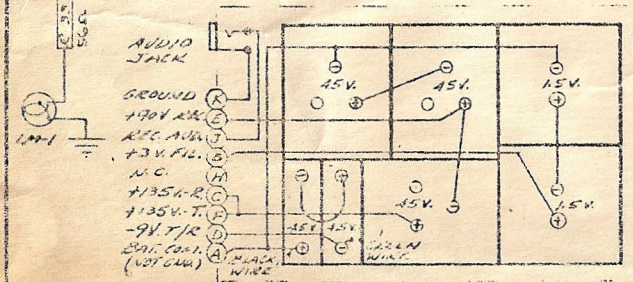 C 33
56Ω
1M-1
AUDIO
JACK
GROUND K
+90V REC E
REC. AUD. J
+3V. FIL. B
N.C. H
+135V.-R. C
+135V.-T. F
-9V. T/R D
BAT. COM. A
(NOT GND.)
BLACK
WIRE
GREEN
WIRE
45V.
45V.
1.5V.
45V.
1.5V.
4.5V.
4.5V.